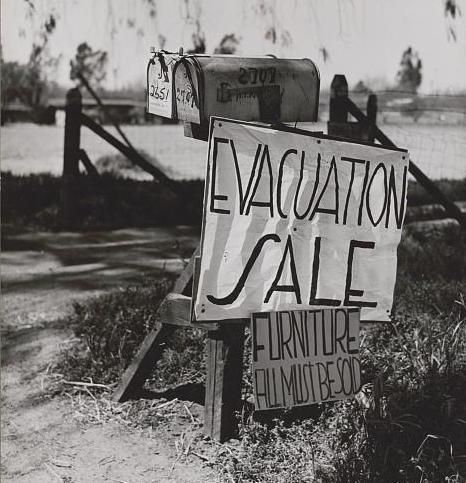 2651
2707
2707
EVACUATION
SALE
FURNITURE
ALL MUST BE SOLD